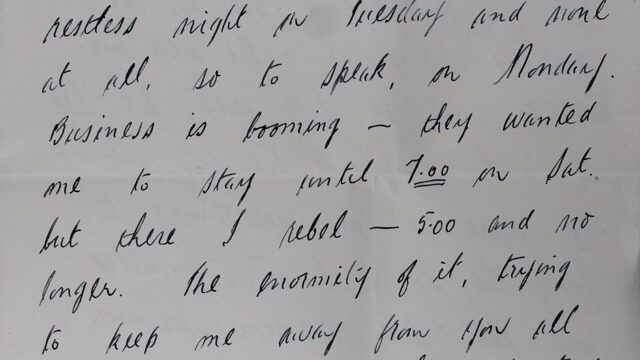 restless night on Tuesday and none
at all, so to speak, on Monday.
Business is booming — they wanted
me to stay until 7.00 on Sat.
but there I rebel — 5.00 and no
longer. The enormity of it, trying
to keep me away from you all